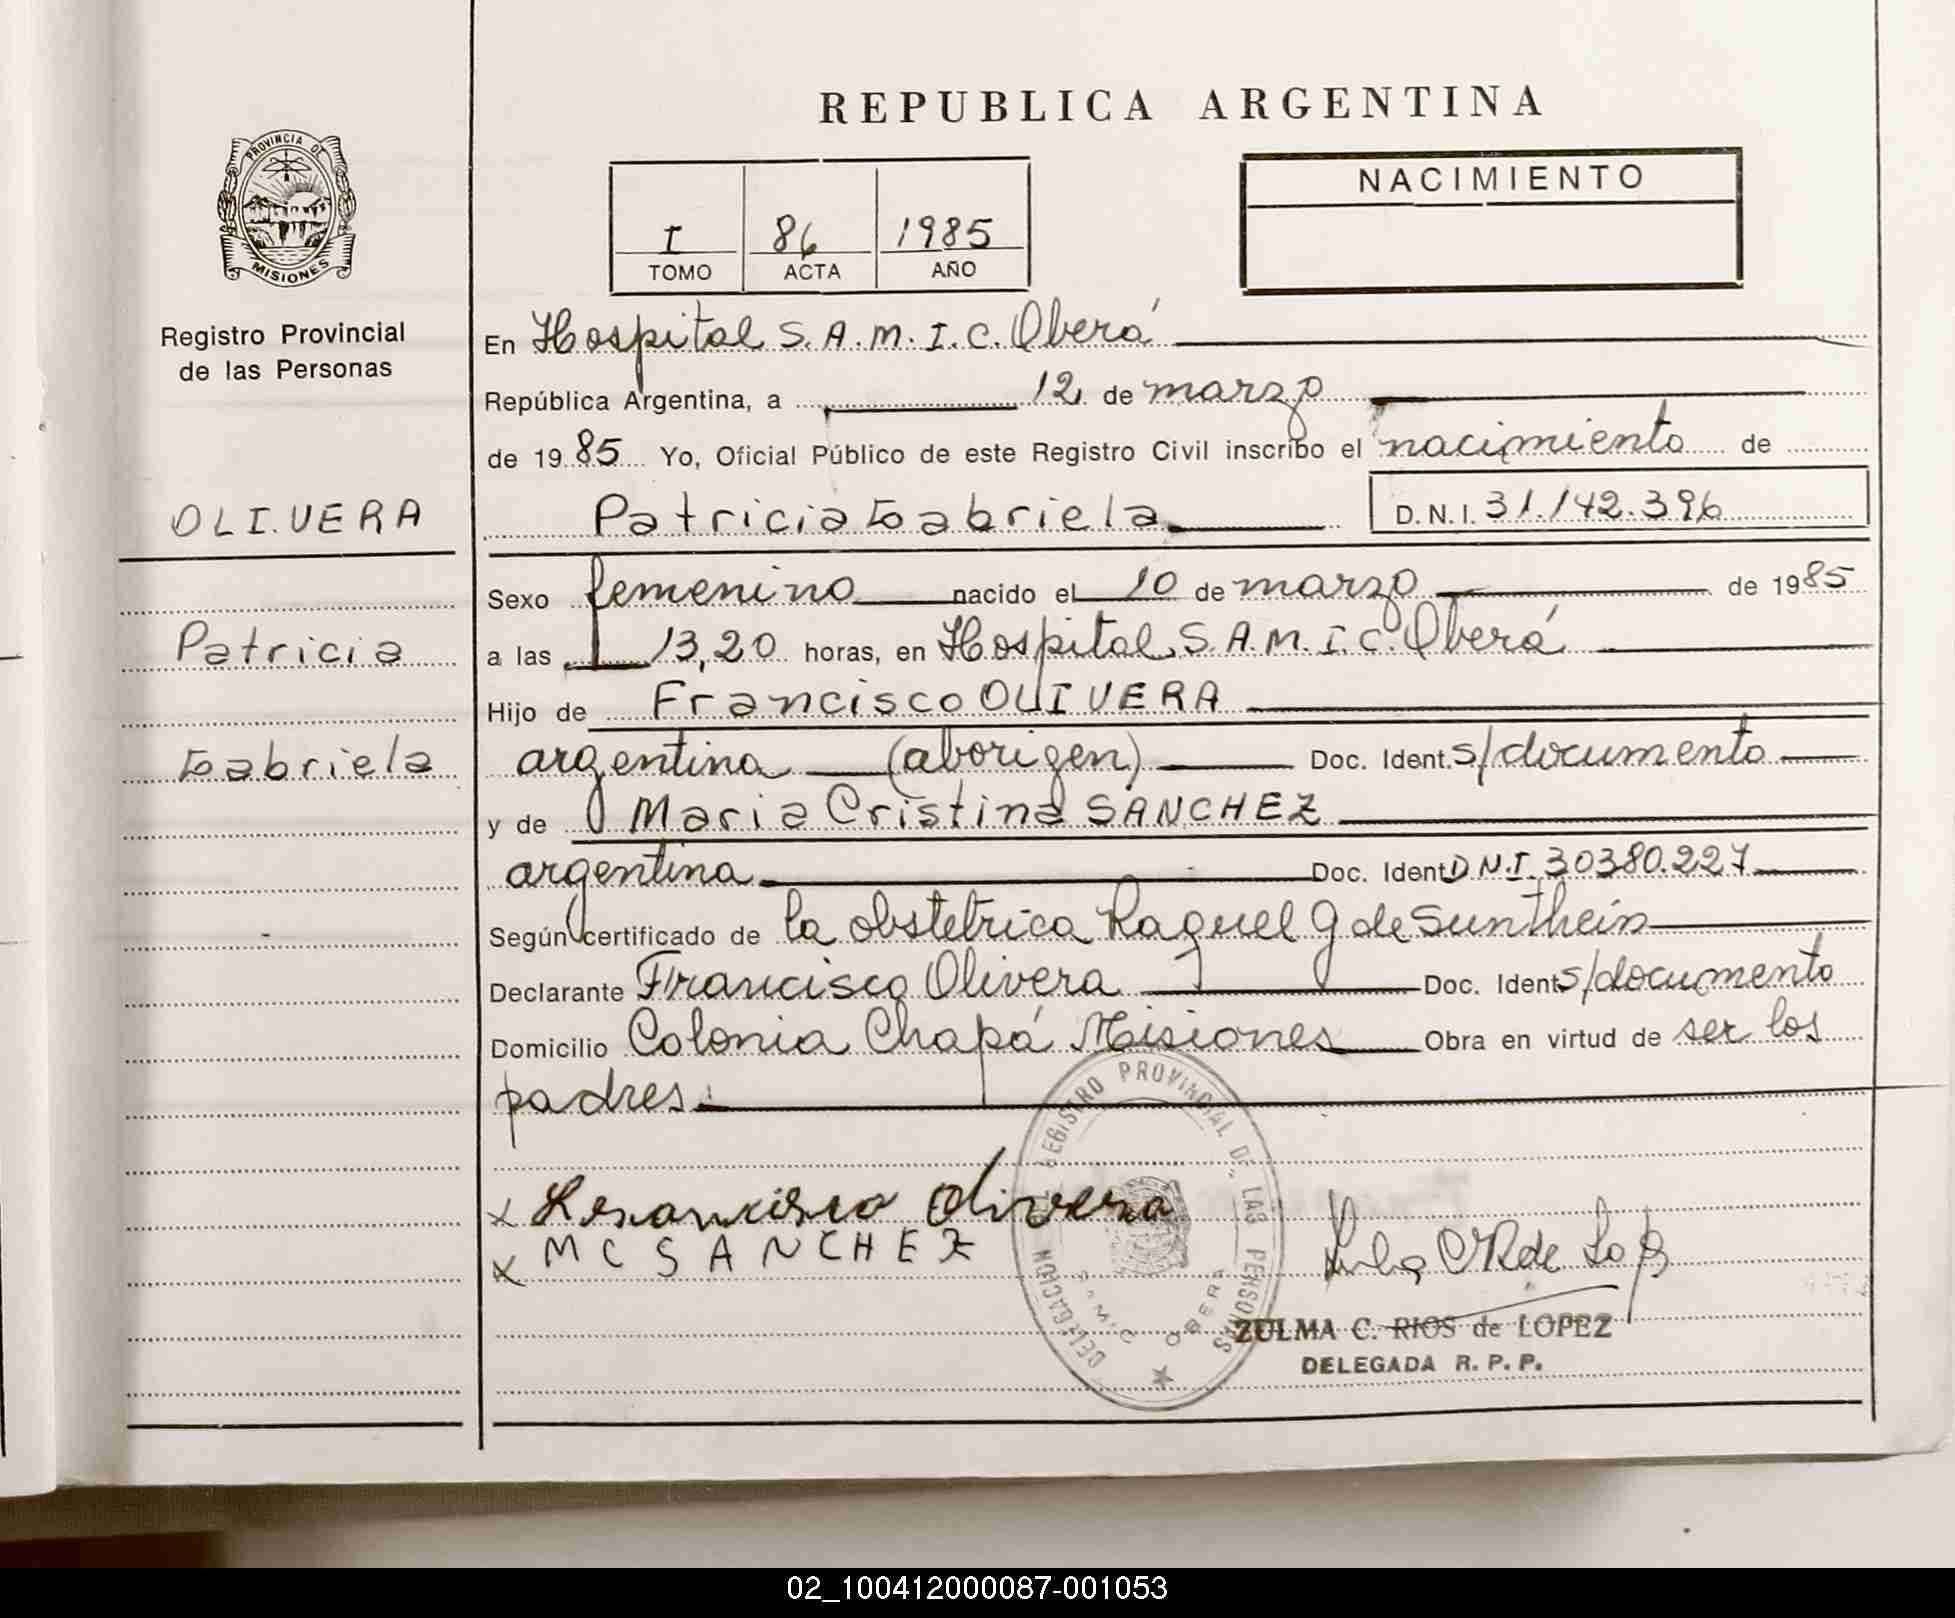 REPUBLICA ARGENTINA
PROVINCIA DE
MISIONES
Registro Provincial
de las Personas
I 86 1985
TOMO ACTA AÑO
NACIMIENTO
En Hospital S.A.M.I.C. Oberá
República Argentina, a 12 de marzo
de 1985 Yo, Oficial Público de este Registro Civil inscribo el nacimiento de
OLIVERA
Patricia Gabriela D.N.I. 31.142.396
Sexo femenino nacido el 10 de marzo de 1985
Patricia
a las 13,20 horas, en Hospital S.A.M.I.C. Oberá
Hijo de Francisco OLIVERA
Gabriela
argentina (aborigen) Doc. Ident. s/documento
y de Maria Cristina SANCHEZ
argentina Doc. Ident D.N.I. 30380.227
Según certificado de la obstetrica Raquel G de Sunthein
Declarante Francisco Olivera Doc. Ident s/documento
Domicilio Colonia Chapá Misiones Obra en virtud de ser los
padres.
DELEGACION REGISTRO PROVINCIAL DE LAS PERSONAS
S.A.M.I.C. OBERA
x Francisco Olivera
x M C SANCHEZ
ZULMA C. RIOS de LOPEZ
DELEGADA R. P. P.
02_100412000087-001053